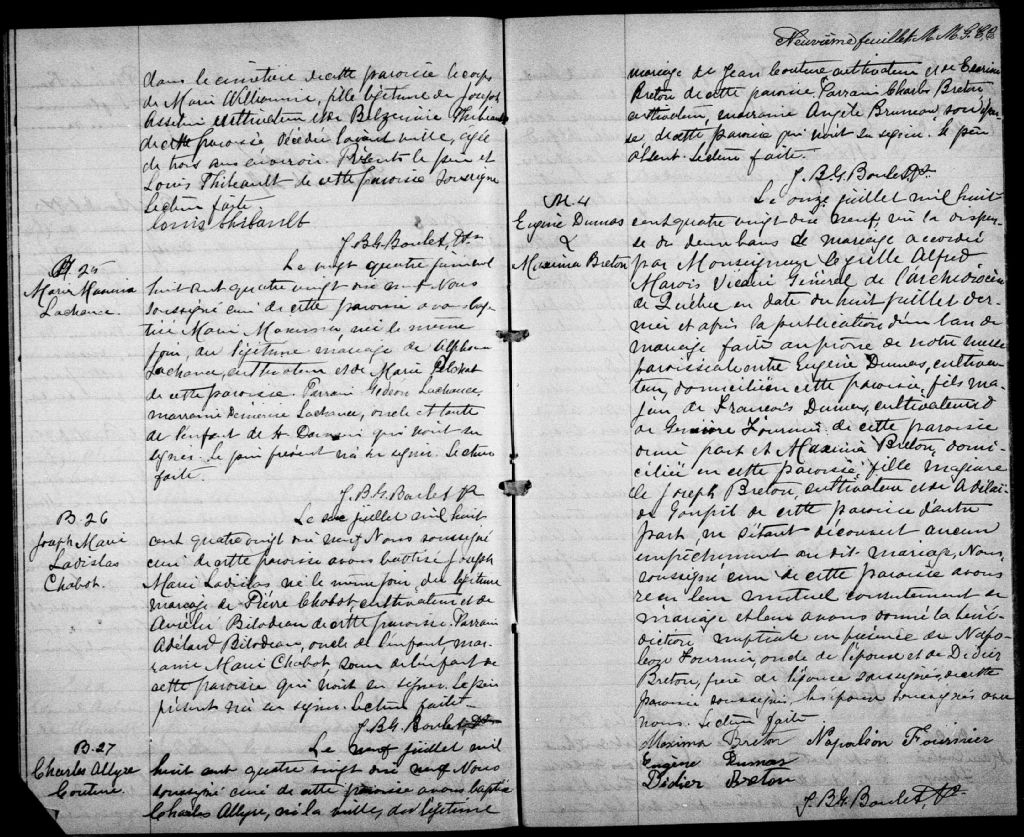 dans le cimetière de cette paroisse le corps
de Marie Willieminie, fille légitime de Joseph
Asselin cultivateur et de Belzemire Thibault
de cette paroisse, décédée l'avant veille, agée
de trois ans environ. Présents le père et
Louis Thibeault de cette paroisse soussigné
Lecture faite.
Louis Thibault
J. B. G. Boulet, Ptr
B 25
Marie Maxima
Lachance.
Le vingt quatre juin mil
huit cent quatre vingt dix neuf Nous
soussigné curé de cette paroisse avons bap-
tisé Marie Maxima née le même
jour, du légitime mariage de Alphonse
Lachance, cultivateur et de Marie
de cette paroisse. Parrain Gédéon Lachance,
marraine Démerise Lachance, oncle et tante
de l'enfant de St Damien qui n'ont su
signer. Le père présent n'a su signer. Lecture
faite.
J. B. G. Boulet Ptr
B. 26
Joseph Marie
Ladislas
Chabot.
Le six juillet mil huit
cent quatre vingt dix neuf Nous soussigné
curé de cette paroisse avons baptisé Joseph
Marie Ladislas né le même jour, du légitime
mariage de Pierre Chabot, cultivateur et de
Aurélie Bilodeau de cette paroisse. Parrain
Adélard Bilodeau, oncle de l'enfant, mar-
raine Marie Chabot, soeur de l'enfant de
cette paroisse qui n'ont su signer. Le père
présent n'a su signer. Lecture faite.
J. B. G. Boulet, Ptr
B. 27
Charles Allyre
Couture
Le neuf juillet mil
huit cent quatre vingt dix neuf Nous
soussigné curé de cette paroisse avons baptisé
Charles Allyre, né la veille, du légitime
Neuvième feuillet M. M. G. C. C.
mariage de Jean Couture cultivateur et de
Breton de cette paroisse Parrain Charles Breton
cultivateur, marraine Angèle Bruneau, son épou-
se, de cette paroisse qui n'ont su signer. Le père
absent. Lecture faite.
J. B. G. Boulet Ptr.
M. 4
Eugène Dumas
&
Maxima Breton
Le onze juillet mil huit
cent quatre vingt dix neuf, vu la dispen-
se de deux bans de mariage accordée
par Monseigneur Cyrille Alfred
Marois Vicaire Général de l'archidiocèse
de Québec en date du huit juillet der-
nier et après la publication d'un ban de
mariage faite au prône de notre messe
paroissiale entre Eugène Dumas, cultiva-
teur, domicilié en cette paroisse, fils ma-
jeur de François Dumas, cultivateur et
de Geneviève Fournier de cette paroisse
d'une part et Maxima Breton, domi-
ciliée en cette paroisse, fille majeure
de Joseph Breton, cultivateur et de Adélaï-
de Goupil de cette paroisse d'autre
part, ne s'étant découvert aucun
empêchement au dit mariage, Nous,
soussigné curé de cette paroisse avons
reçu leur mutuel consentement de
mariage et leur avons donné la béné-
diction nuptiale en présence de Napo-
léon Fournier, oncle de l'époux et de Didier
Breton, frère de l'épouse soussignés, de cette
paroisse soussignés, les époux soussignés avec
nous. Lecture faite
Maxima Breton Napoléon Fournier
Eugène Dumas
Didier Breton
J. B. G. Boulet, Ptr.